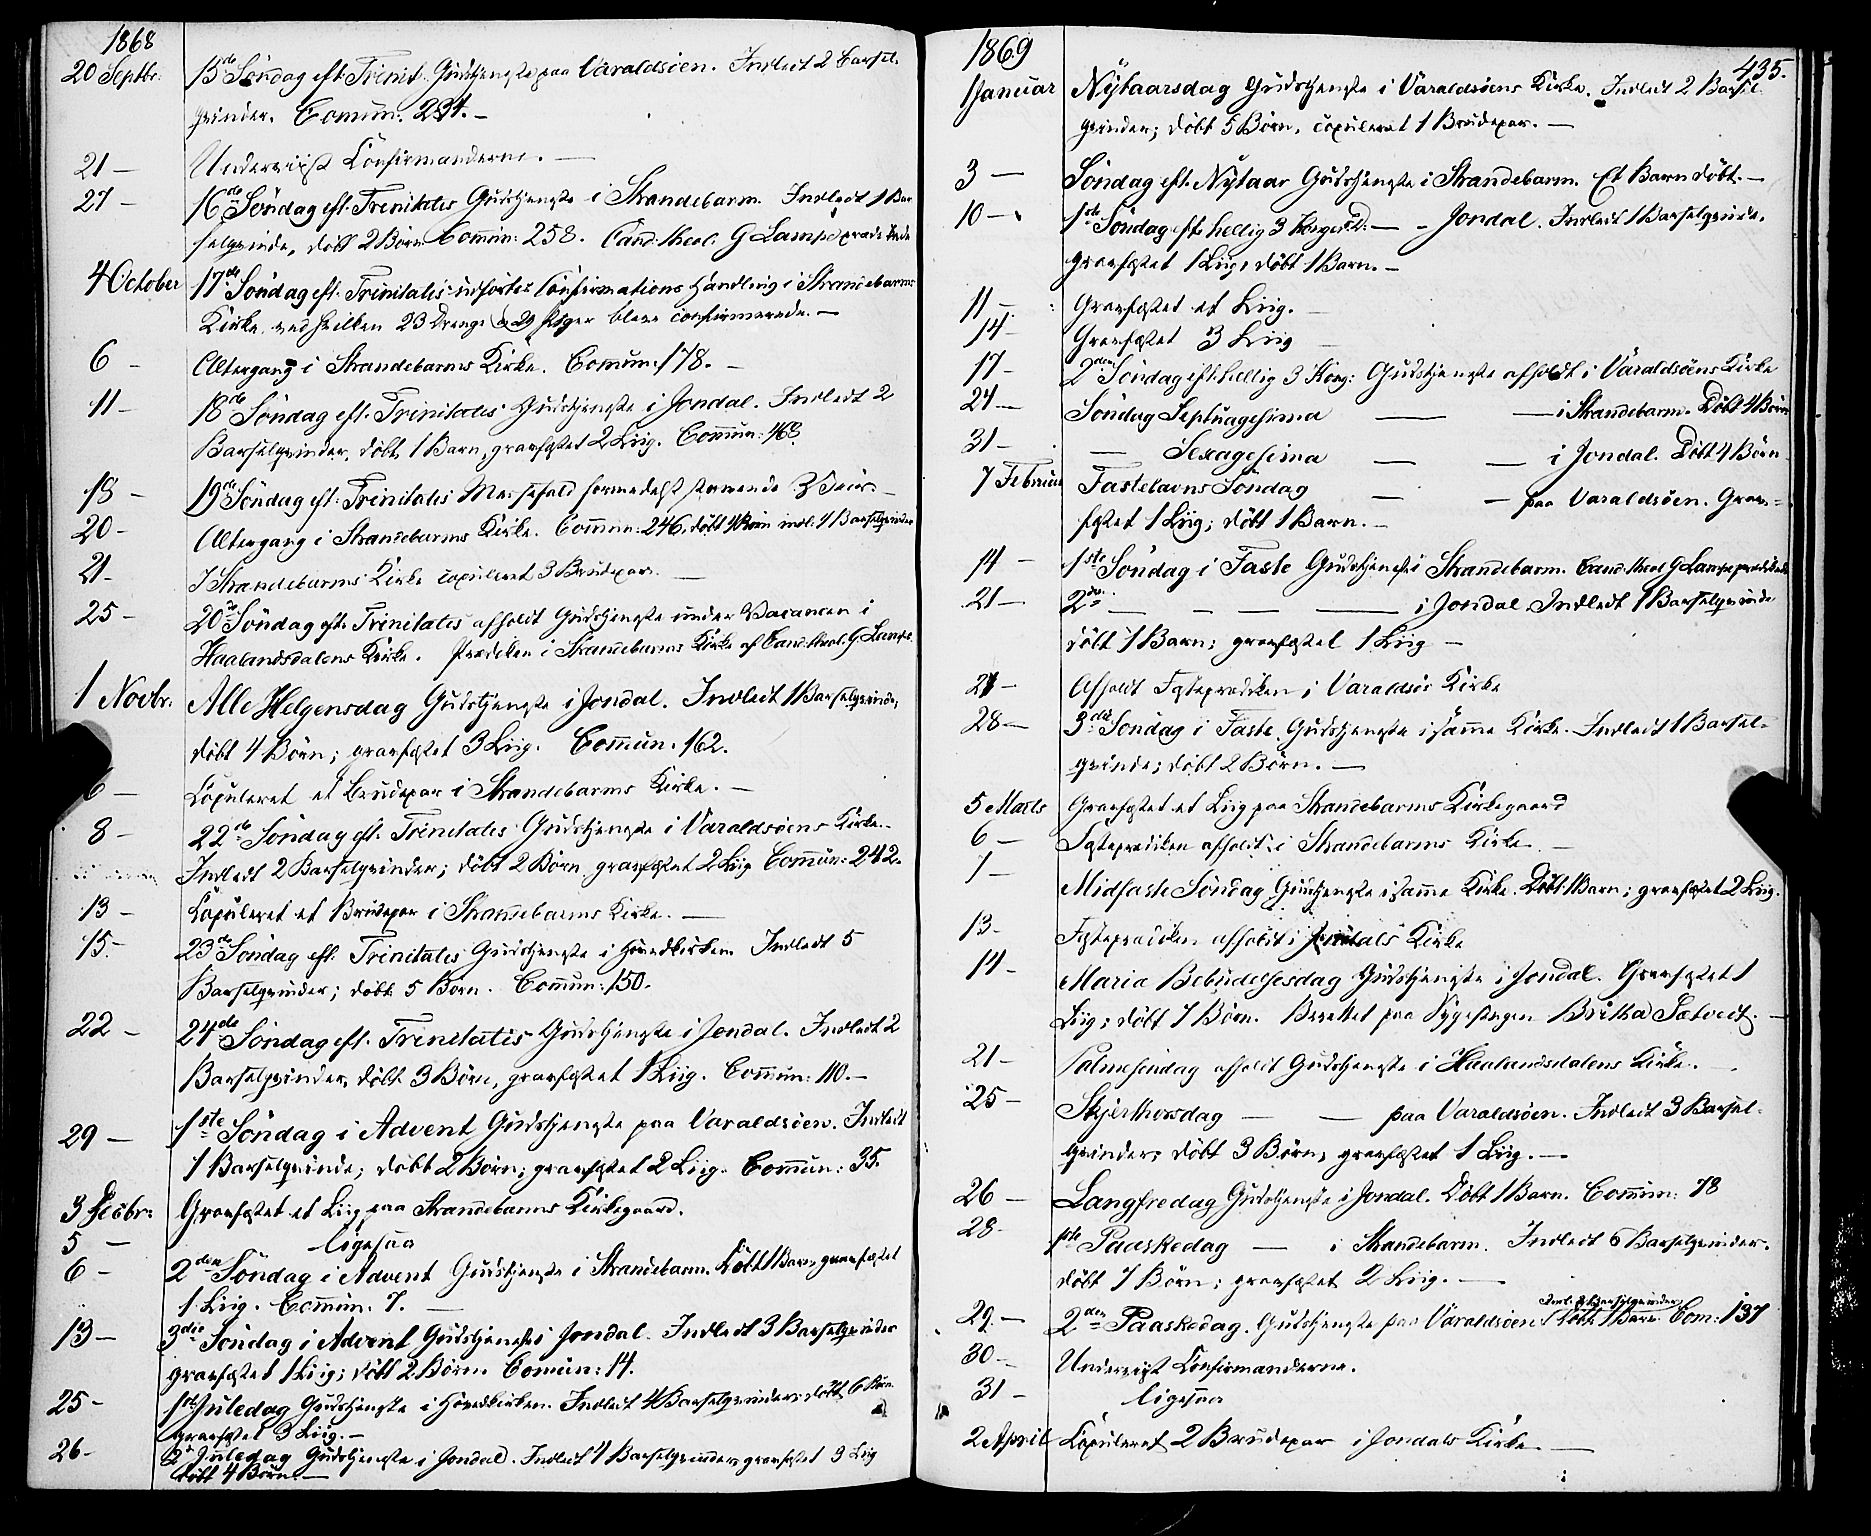 1868
20 Septbr. 15de Söndag eft. Trinit. Gudstjeneste paa Varaldsöen. Indledt 2 Barsel-
qvinder. Comun. 234. –
21 – Underviist Confirmanderne. –
27 – 16de Söndag eft. Trinitatis Gudstjeneste i Strandebarm. Indledt 1 Bar
selqvinde, döbt 2 Börn Commun: 258. Cand. theol. G Lampe prædikede
4 October 17de Söndag eft. Trinitatis udförtes Confirmations Handling i Strandebarms
Kirke ved hvilken 23 Drenge og 29 Piger bleve confirmerede. –
6 – Altergang i Strandebarms Kirke. Commun: 178. –
11 – 18de Söndag eft. Trinitatis Gudstjeneste i Jondal. Indledt 2
Barselqvinder, döbt 1 Barn, gravfæstet 2 Liig. Commun: 168.
18 – 19de Söndag eft. Trinitatis Messefald formedelst stormende Veir. –
20 – Altergang i Strandebarms Kirke. Commun: 246, döbt 4 Börn indl. 4 Barselqvinder
21 – I Strandebarms Kirke copuleret 3 Brudepar. –
25 – 20de Söndag eft. Trinitatis afholdt Gudstjeneste under Vacancen i
Haalandsdalens Kirke. Prædiken i Strandebarms Kirke af Cand. theol. G. Lampe
1 Novbr. Alle Helgensdag Gudstjeneste i Jondal. Indledt 1 Barselqvinde,
döbt 4 Börn; gravfæstet 3 Liig. Commun. 162.
6 – Copuleret et Brudepar i Strandebarms Kirke. –
8 – 22de Söndag eft. Trinitatis Gudstjeneste i Varaldsöens Kirke.
Indledt 2 Barselqvinder; döbt 2 Börn gravfæstet 2 Liig Commun: 242.
13 – Copuleret et Brudepar i Strandebarms Kirke. –
15. – 23de Söndag eft. Trinitatis Gudstjeneste i Hovedkirken Indledt 5
Barselqvinder; döbt 5 Börn. Commun: 150.
22 – 24de Söndag eft. Trinitatis Gudstjeneste i Jondal. Indledt 2
Barselqvinder, döbt 3 Börn, gravfæstet 1 Liig. Commun: 110. –
29 – 1ste Söndag i Advent Gudstjeneste paa Varaldsöen. Indledt
1 Barselqvinde; döbt 2 Börn; gravfæstet 2 Liig. Commun: 35.
3 Decbr: Gravfæstet et Liig paa Strandebarms Kirkegaard.
5 – ligesaa
6 – 2den Söndag i Advent Gudstjeneste i Strandebarm. Döbt 1 Barn, gravfæstet
1 Liig. Commun. 7. –
13 – 3die Söndag i Advent Gudstjeneste i Jondal. Indledt 3 Barselqvinder
gravfæstet 1 Liig; döbt 2 Börn. Comun: 14.
25 – 1ste Juledag Gudstjeneste i Hovedkirken. Indledt 4 Barselqvinder; döbt 6 Börn
gravfæstet 3 Liig. –
26 – 2d Juledag Gudstjeneste i Jondal. Indledt 4 Barselqvinder gravfæstet 3 Liig
döbt 4 Börn. –
435.
1869
1 Januar Nytaarsdag Gudstjeneste i Varaldsöens Kirke. Indledt 2 Barsel
qvinder; döbt 5 Börn, copuleret 1 Brudepar. –
3 – Söndag eft. Nytaar Gudstjeneste i Strandebarm. Et Barn döbt. –
10 – 1ste Söndag eft. hellig 3 KongersD: – – Jondal. Indledt 1 Barselqvinde,
gravfæstet 1 Liig, döbt 1 Barn. –
11 – Gravfæstet et Liig. –
14 – Gravfæstet 3 Liig –
17 – 2den Söndag eft. hellig 3 Kong: Gudstjeneste afholdt i Varaldsöens Kirke
24 – Söndag Septuagesima – – i Strandebarm. Döbt 4 Börn
31 – – Sexagesima – – i Jondal. Döbt 4 Börn
7 Februar Fastelavns Söndag – – paa Varaldsöen. Grav-
fæstet 1 Liig; döbt 1 Barn. –
14 – 1ste Söndag i Faste Gudstjeneste i Strandebarm. Cand. theol G Lampe prædikede
21 – 2den – – – – i Jondal Indledt 1 Barselqvinde
döbt 1 Barn; gravfæstet 1 Liig –
27 – Afholdt Fasteprædiken i Varaldsös Kirke
28 – 3die Söndag i Faste. Gudstjeneste i samme Kirke. Indledt 1 Barsel-
qvinde; döbt 2 Börn. –
5 Marts Gravfæstet et Liig paa Strandebarms Kirkegaard
6 – Fasteprædiken afholdt i Strandebarms Kirke –
7 – Midfaste Söndag Gudstjeneste i samme Kirke. Döbt 1 Barn; gravfæstet 2 Liig.
13. – Fasteprædiken afholdt i Jondals Kirke
14 – Maria Bebudelsesdag Gudstjeneste i Jondal. Gravfæstet 1
Liig; döbt 7 Börn. Berettet paa Sygesengen Britha Sætveit. –
21 – Palmesöndag afholdt Gudstjeneste i Haalandsdalens Kirke. –
25 – Skjerthorsdag – – paa Varaldsöen. Indledt 3 Barsel-
qvinder; döbt 3 Börn; gravfæstet 1 Liig. –
26 – Langfredag Gudstjeneste i Jondal. Döbt 1 Barn. Commun: 78
28 – 1ste Paaskedag – i Strandebarm. Indledt 6 Barselqvinder.
döbt 7 Börn; gravfæstet 2 Liig. –
29 – 2den Paaskedag. Gudstjeneste paa Varaldsöen Indl. 2 Barselqvinder, döbt 1 Barn. Com: 137
30 – Underviist Confirmanderne.
31 – ligesaa
2 April Copuleret 2 Brudepar i Jondals Kirke –